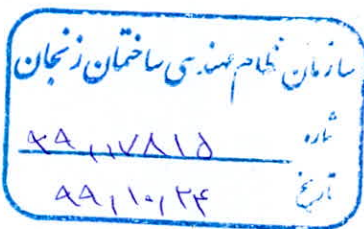 سازمان نظام مهندسی ساختمان زنجان
شماره ۹۹,,۱۷۸۱۵
تاریخ ۹۹,۱۰,۲۴